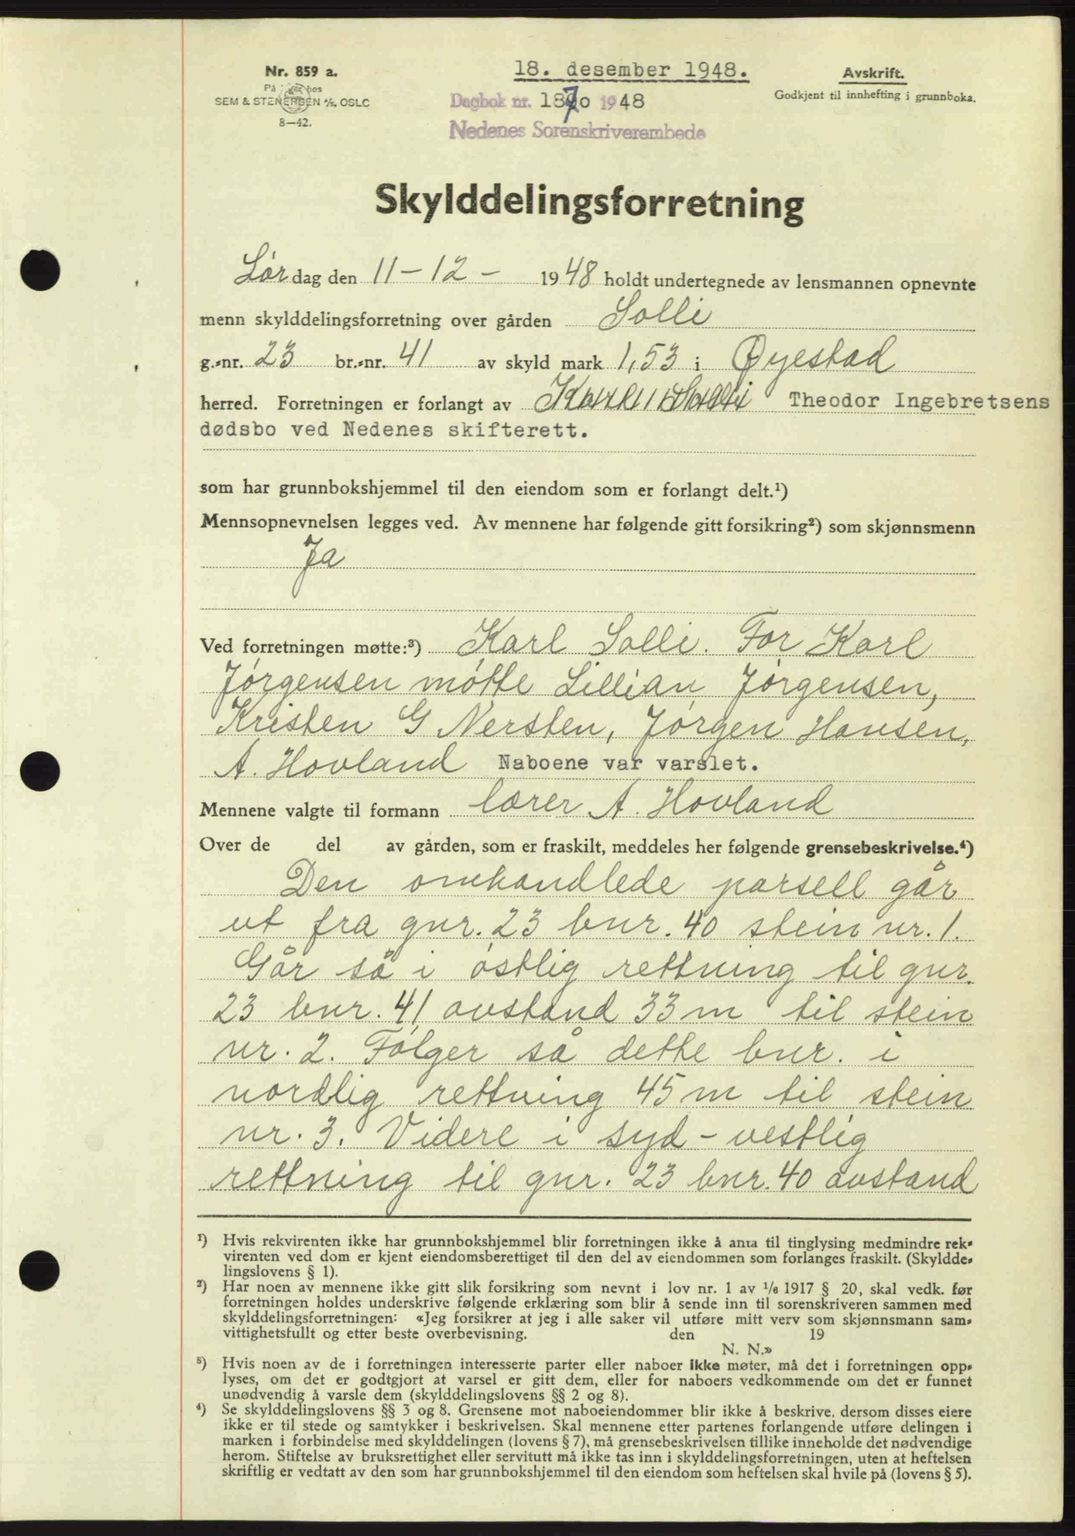 Nr. 859 a.
SEM & STENERSEN A/S, OSLO
8-42.
18. desember 1948.
Dagbok nr. 1870 1948
Nedenes Sorenskriverembede
Avskrift.
Godkjent til innhefting i grunnboka.
Skylddelingsforretning
Lørdag den 11-12- 1948 holdt undertegnede av lensmannen opnevnte
menn skylddelingsforretning over gården Solli
g.-nr. 23 br.-nr. 41 av skyld mark 1,53 i Øyestad
herred. Forretningen er forlangt av Karl Solli Theodor Ingebretsens
dødsbo ved Nedenes skifterett.
som har grunnbokshjemmel til den eiendom som er forlangt delt.¹)
Mennsopnevnelsen legges ved. Av mennene har følgende gitt forsikring²) som skjønnsmenn
Ja
Ved forretningen møtte:³) Karl Solli. For Karl
Jørgensen møtte Lillian Jørgensen,
Kristen G Nersten, Jørgen Hansen,
A. Hovland Naboene var varslet.
Mennene valgte til formann lærer A. Hovland
Over de del av gården, som er fraskilt, meddeles her følgende grensebeskrivelse.⁴)
Den omhandlede parsell går
ut fra gnr. 23 bnr. 40 stein nr. 1.
Går så i østlig rettning til gnr.
23 bnr. 41 avstand 33 m til stein
nr. 2. Følger så dette bnr. i
nordlig rettning 45 m til stein
nr. 3. Videre i syd-vestlig
rettning til gnr. 23 bnr. 40 avstand
¹) Hvis rekvirenten ikke har grunnbokshjemmel blir forretningen ikke å anta til tinglysing medmindre rek-
virenten ved dom er kjent eiendomsberettiget til den del av eiendommen som forlanges fraskilt. (Skyldde-
lingslovens § 1).
²) Har noen av mennene ikke gitt slik forsikring som nevnt i lov nr. 1 av 1/6 1917 § 20, skal vedk. før
forretningen holdes underskrive følgende erklæring som blir å sende inn til sorenskriveren sammen med
skylddelingsforretningen: «Jeg forsikrer at jeg i alle saker vil utføre mitt verv som skjønnsmann sam-
vittighetsfullt og etter beste overbevisning. den 19
N. N.»
³) Hvis noen av de i forretningen interesserte parter eller naboer ikke møter, må det i forretningen opp-
lyses, om det er godtgjort at varsel er gitt dem, eller for naboers vedkommende om det er funnet
unødvendig å varsle dem (skylddelingslovens §§ 2 og 8).
⁴) Se skylddelingslovens §§ 3 og 8. Grensene mot naboeiendommer blir ikke å beskrive, dersom disses eiere
ikke er til stede og samtykker i beskrivelsen. Skal mennene etter partenes forlangende utføre delingen i
marken i forbindelse med skylddelingen (lovens § 7), må grensebeskrivelsen tillike inneholde det nødvendige
herom. Stiftelse av bruksrettighet eller servitutt må ikke tas inn i skylddelingsforretningen, uten at heftelsen
skriftlig er vedtatt av den som har grunnbokshjemmel til den eiendom som heftelsen skal hvile på (lovens § 5).